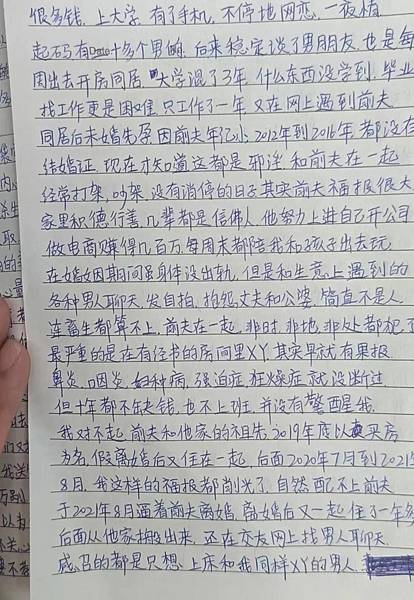 很多钱.上大学.有了手机,不停地网恋.一夜情
起码有十多个男的.后来稳定谈了男朋友,也是每
周出去开房同居.大学混了3年.什么东西没学到.毕业
找工作更是困难.只工作了一年.又在网上遇到前夫.
同居后未婚先孕.因前夫年纪小.2012年到2016年.都没有
结婚证.现在才知道这都是邪淫.和前夫在一起
经常打架.吵架.没有消停的日子.其实前夫福报很大
家里积德行善.几辈都是信佛人.他努力上进自己开公司
做电商赚得几百万.每周末都陪我和孩子出去玩.
在婚姻期间虽身体没出轨.但是和生意上遇到的
各种男人聊天.发自拍.抱怨丈夫和公婆.简直不是人.
连畜生都算不上.前夫在一起.非时.非地.非处都犯了
最严重的是在有经书的房间里XY.其实早就有果报
鼻炎.咽炎.妇科病.强迫症.狂燥症就没断过.
但十年都不缺钱.也不上班.并没有警醒我.
我对不起前夫和他家的祖先.2019年底以买房
为名.假离婚后又住在一起.后面2020年7月到2021年
8月.我这样的福报都削光了.自然配不上前夫
于2021年8月逼着前夫离婚.离婚后又一起住了一年多
后面从他家搬出来.还在交友网上找男人聊天.
感召的都是只想上床和我同样XY的男人.